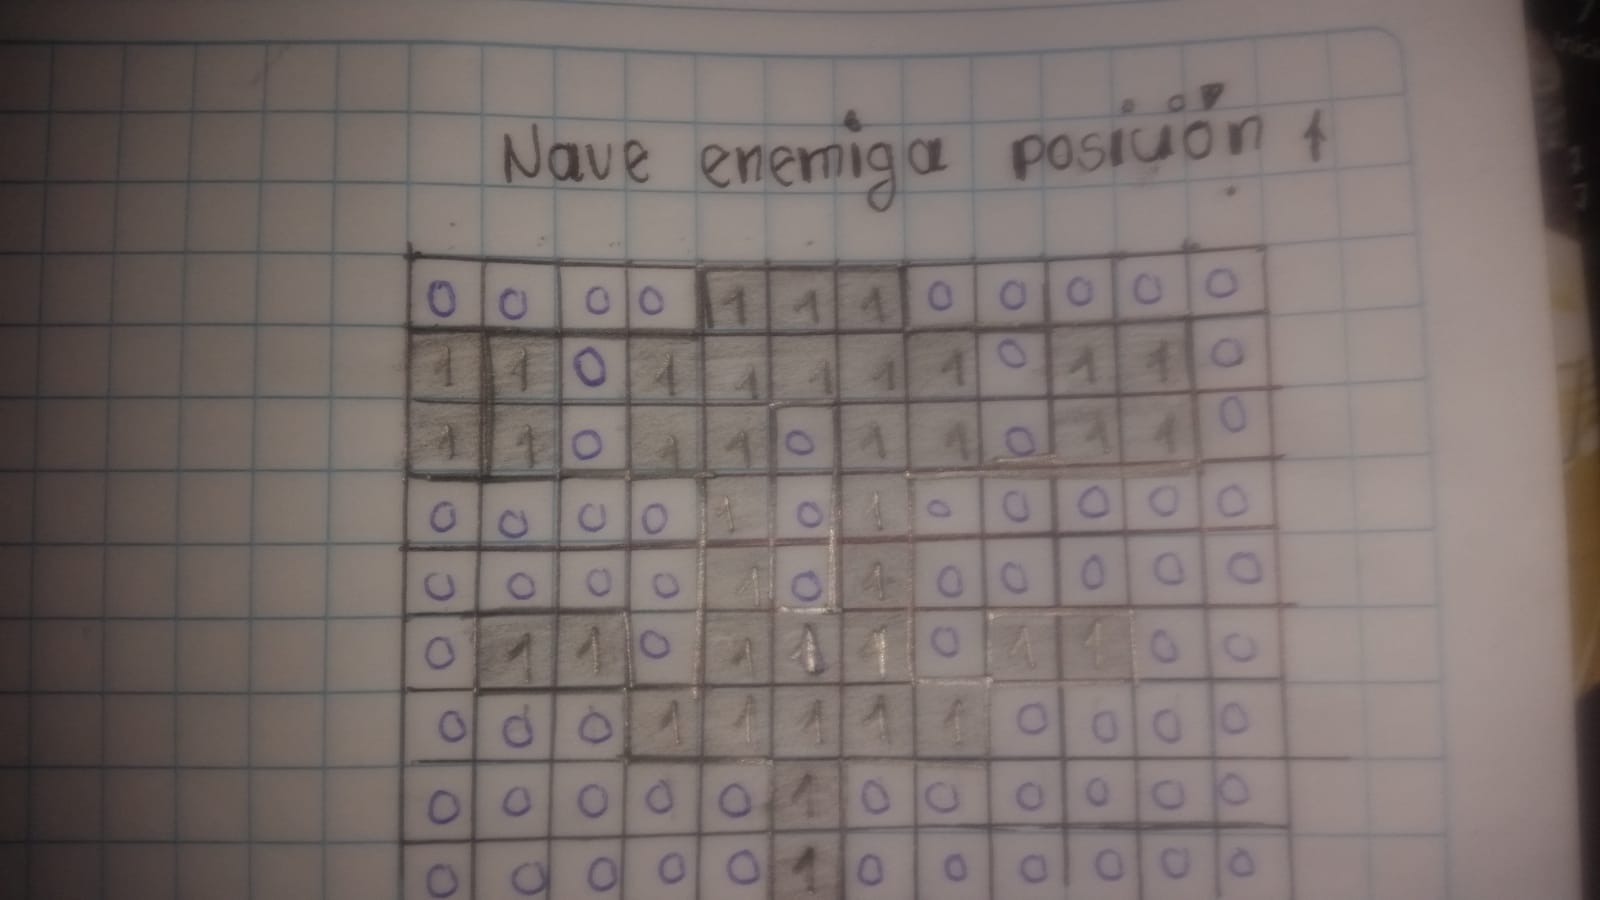 Nave enemiga posición 1
0 0 0 0 1 1 1 0 0 0 0 0
1 1 0 1 1 1 1 1 0 1 1 0
1 1 0 1 1 0 1 1 0 1 1 0
0 0 0 0 1 0 1 0 0 0 0 0
0 0 0 0 1 0 1 0 0 0 0 0
0 1 1 0 1 1 1 0 1 1 0 0
0 0 0 1 1 1 1 1 0 0 0 0
0 0 0 0 0 1 0 0 0 0 0 0
0 0 0 0 0 1 0 0 0 0 0 0